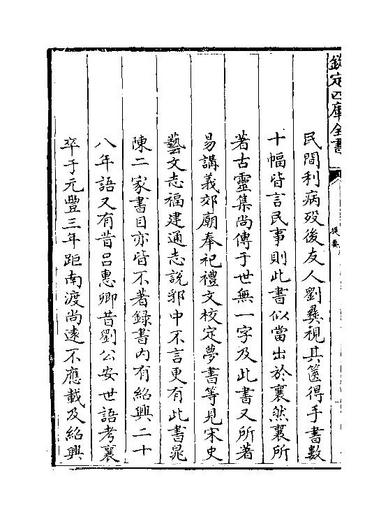 欽定四庫全書
提要
民間利病歿後友人劉彝視其篋得手書數
十幅皆言民事則此書似當出於襄然襄所
著古靈集尚傳于世無一字及此書又所著
易講義郊廟奉祀禮文校定夢書等見宋史
藝文志福建通志說郛中不言更有此書晁
陳二家書目亦皆不著錄書内有紹興二十
八年語又有昔呂惠卿昔劉公安世語考襄
卒于元豐三年距南渡尚逺不應載及紹興